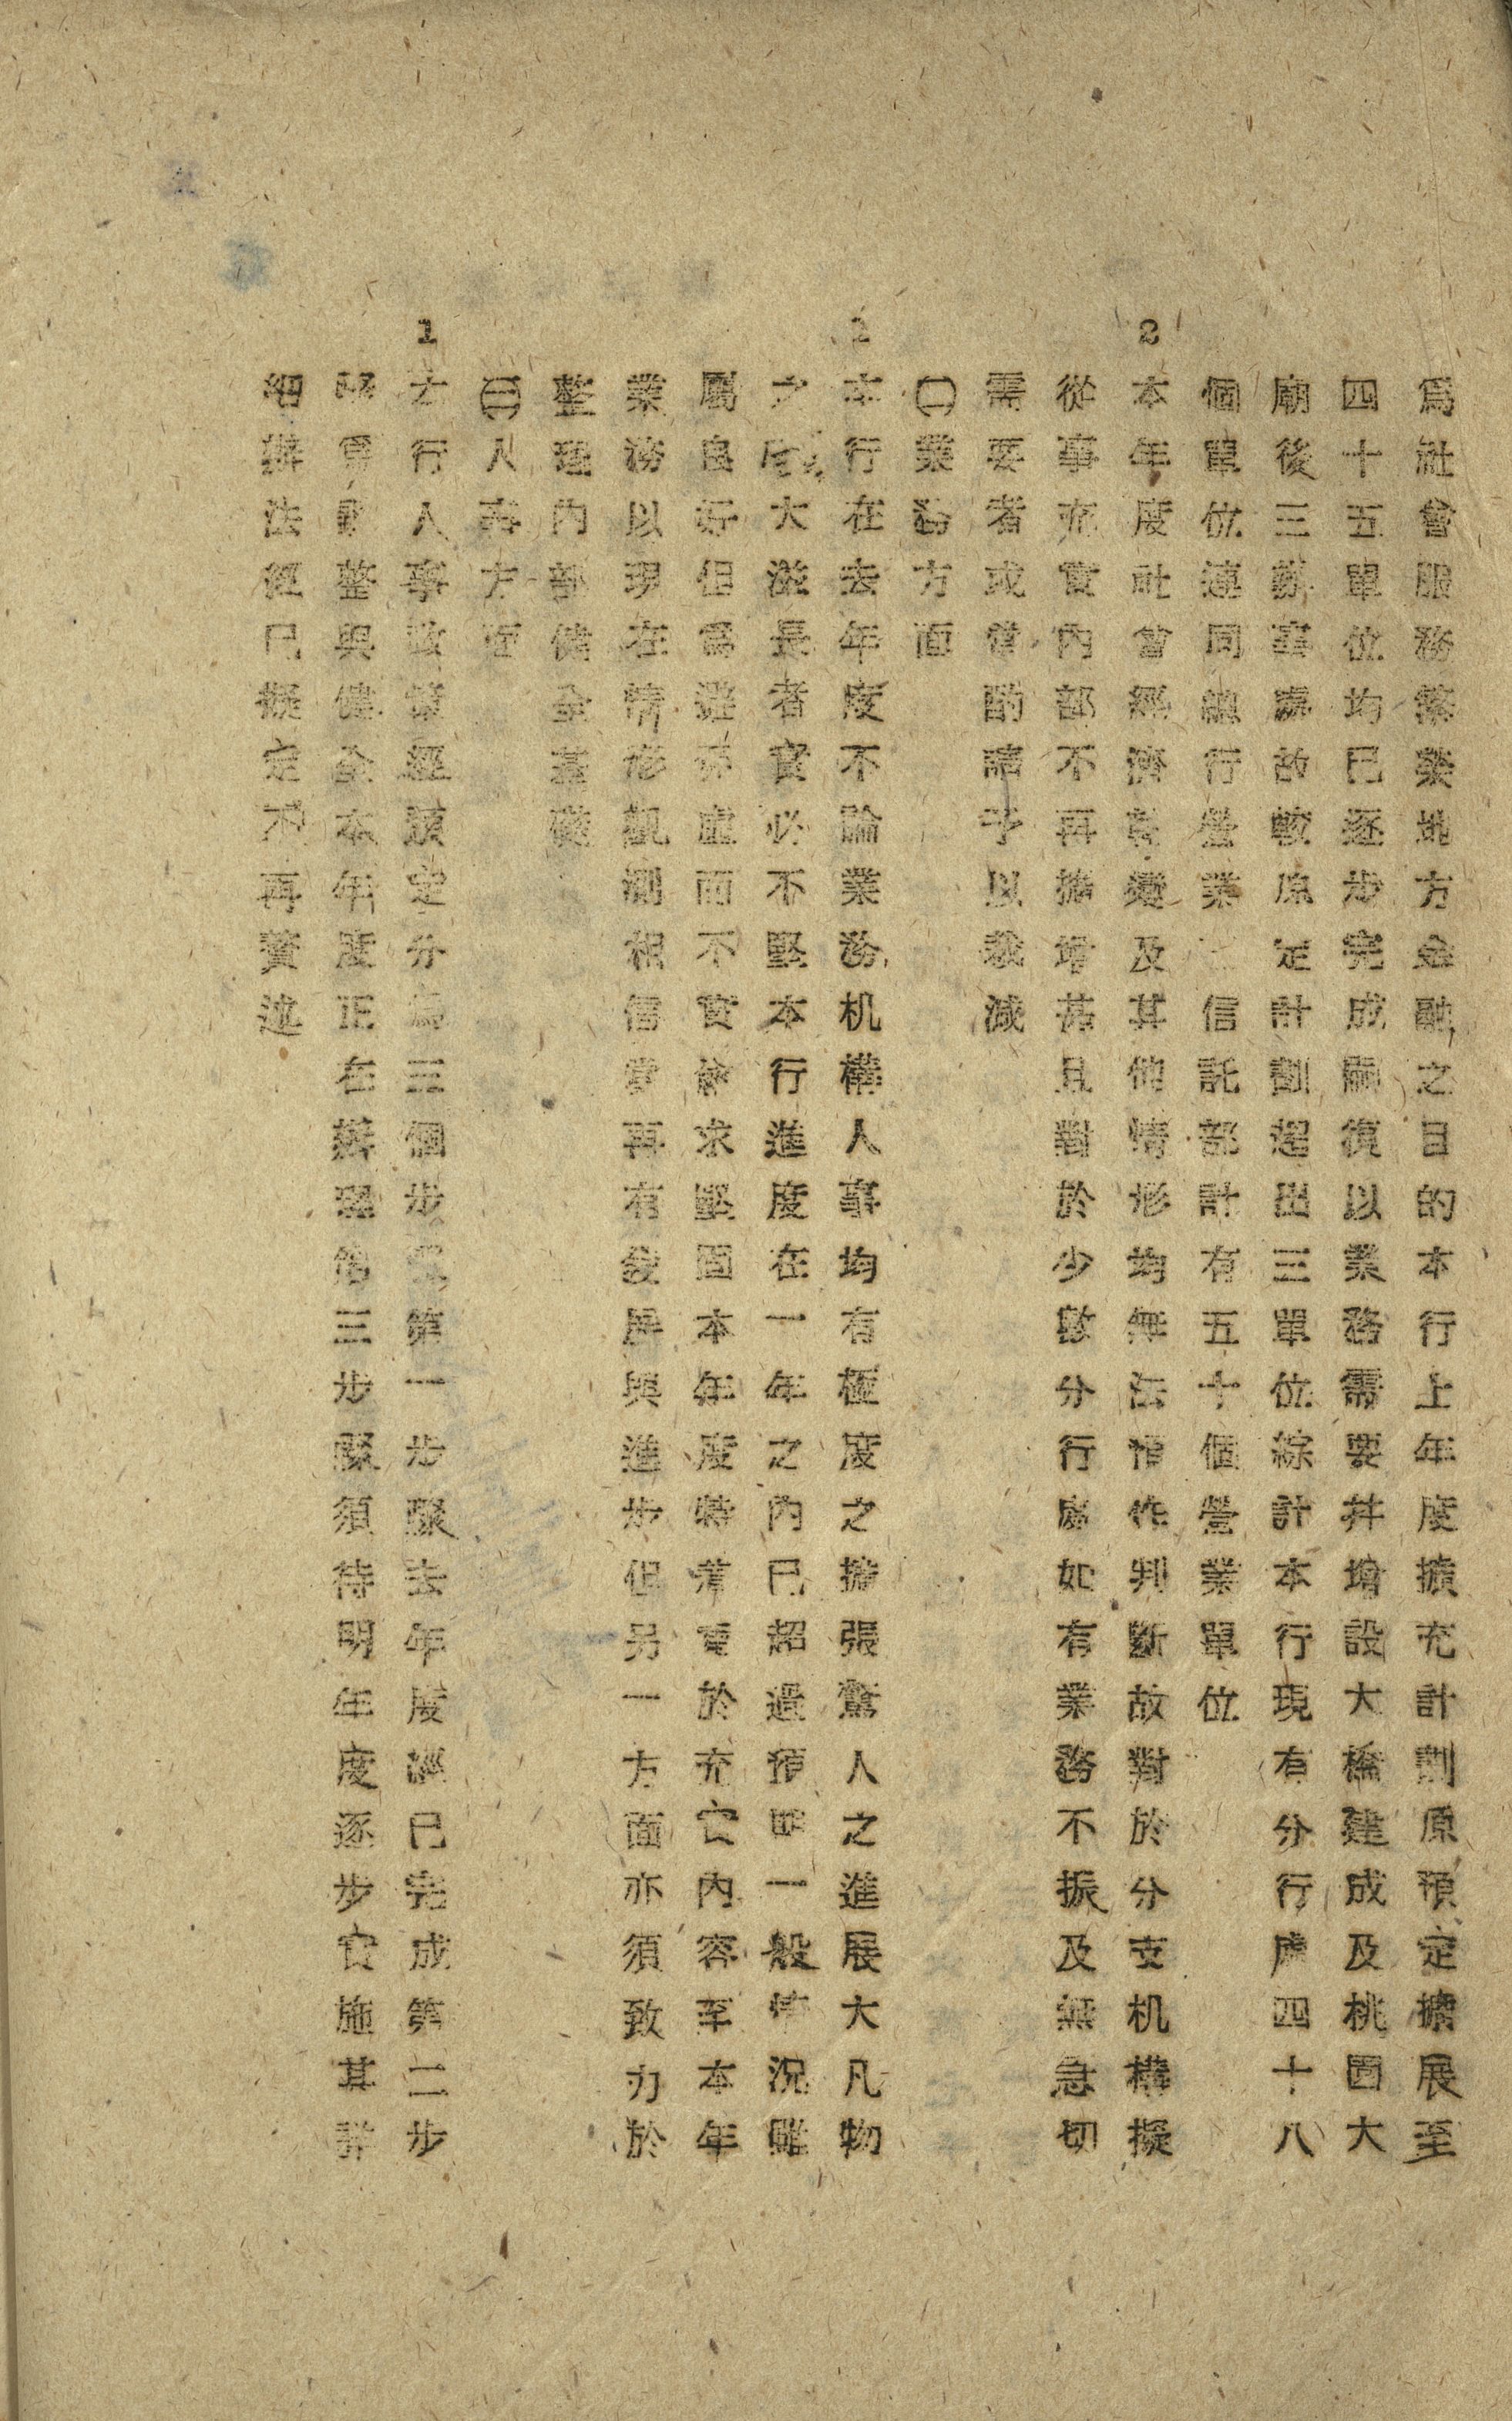 爲社會服務繁榮地方金融之目的本行上年度擴充計劃原預定擴展至
四十五單位均已逐步完成嗣復以業務需要并增設大橋建成及桃園大
廟後三辦事處故較原定計劃超出三單位綜計本行現有分行處四十八
個單位連同總行營業 信託部計有五十個營業單位
2 本年度社會經濟 變及其他情形均無法 作判斷故對於分支机構擬
從事充實內部不再擴增若且對於少數分行處如有業務不振及無急切
需要者或當酌請予以裁減
㈡業務方面
1 本行在去年度不論業務机構人事均有極度之擴張驚人之進展大凡物
之 大滋長者實必不堅本行進度在一年之內已超過預 一般情況雖
屬良好但爲避亦虛而不實 求堅固本年度特着重於充實內容至本年
業務以現在情形觀測相信當再有發展與進步但另一方面亦須致力於
整理內部健全基礎
㈢人事方面
1 本行人事政策經預定分爲三個步驟第一步驟去年度經已完成第二步
驟爲 整與健全本年度正在辦理第三步驟須待明年度逐步實施其詳
細辦法經已擬定不再贅述